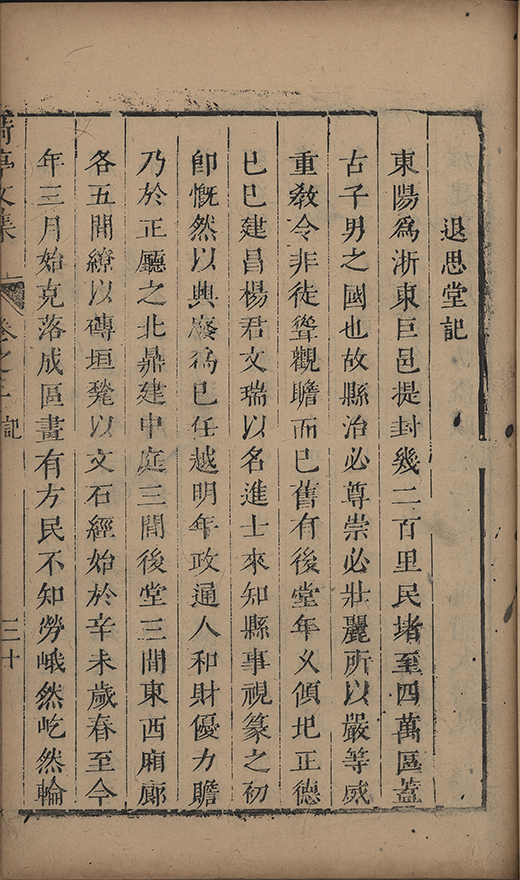 退思堂記
東陽爲浙東巨邑提封幾二百里民堵至四萬區蓋
古子男之國也故縣治必尊崇必壯麗所以嚴等威
重敎令非徒聳觀瞻而已舊有後堂年乂傾圯正德
己巳建昌楊君文瑞以名進士來知縣事視篆之初
卽慨然以興廢爲己任越明年政通人和財優力贍
乃於正廳之北鼎建中庭三間後堂三間東西廂廊
各五間繚以磚垣甃以文石經始於辛未歲春至今
年三月始克落成區畫有方民不知勞峨然屹然輪
亭文集 卷之 記 三十